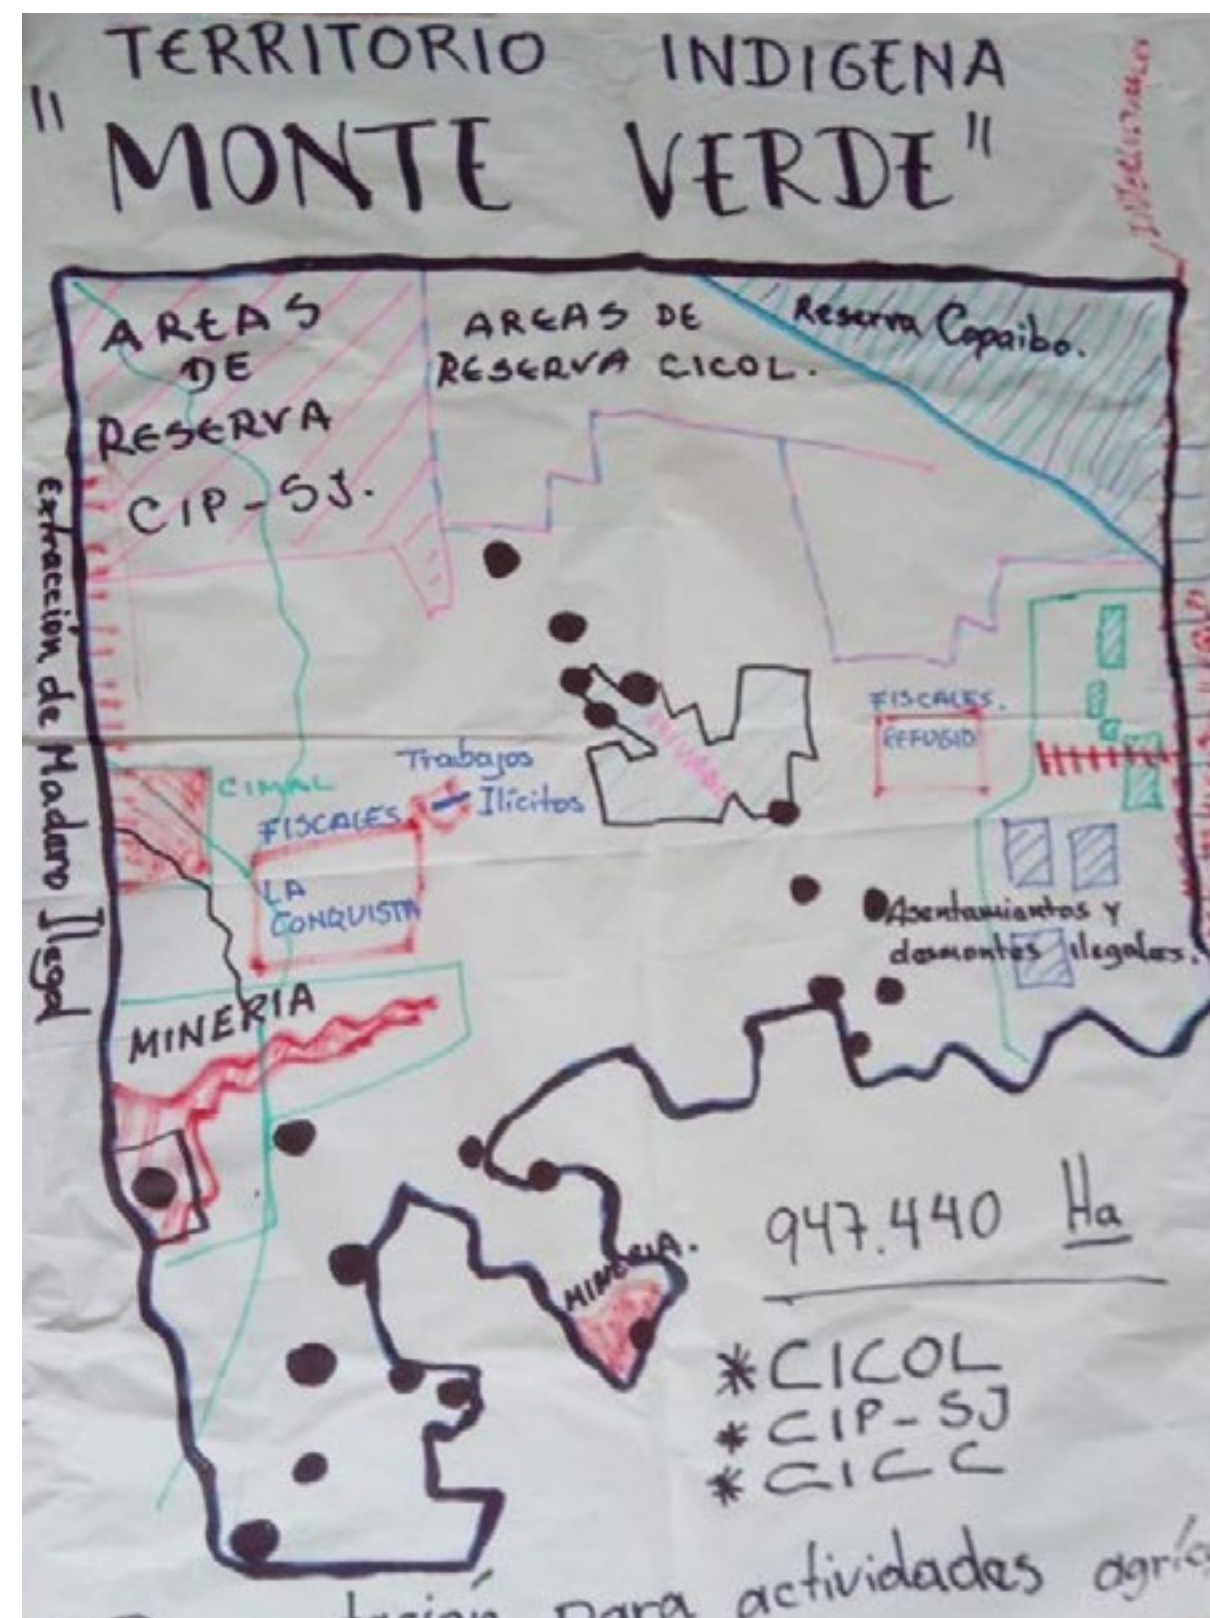 TERRITORIO INDIGENA
"MONTE VERDE"
AREAS
DE
RESERVA
CIP-SJ.
AREAS DE
RESERVA CICOL.
Reserva Copaibo.
Extracción de Madara Ilegal
CIMAL
Trabajos
Ilícitos
FISCALES
LA
CONQUISTA
FISCALES.
REFUGIO
Asentamiantos y
desmontes ilegales.
MINERIA
MINERIA.
947.440 Ha
*CICOL
*CIP-SJ
*CICC
para actividades